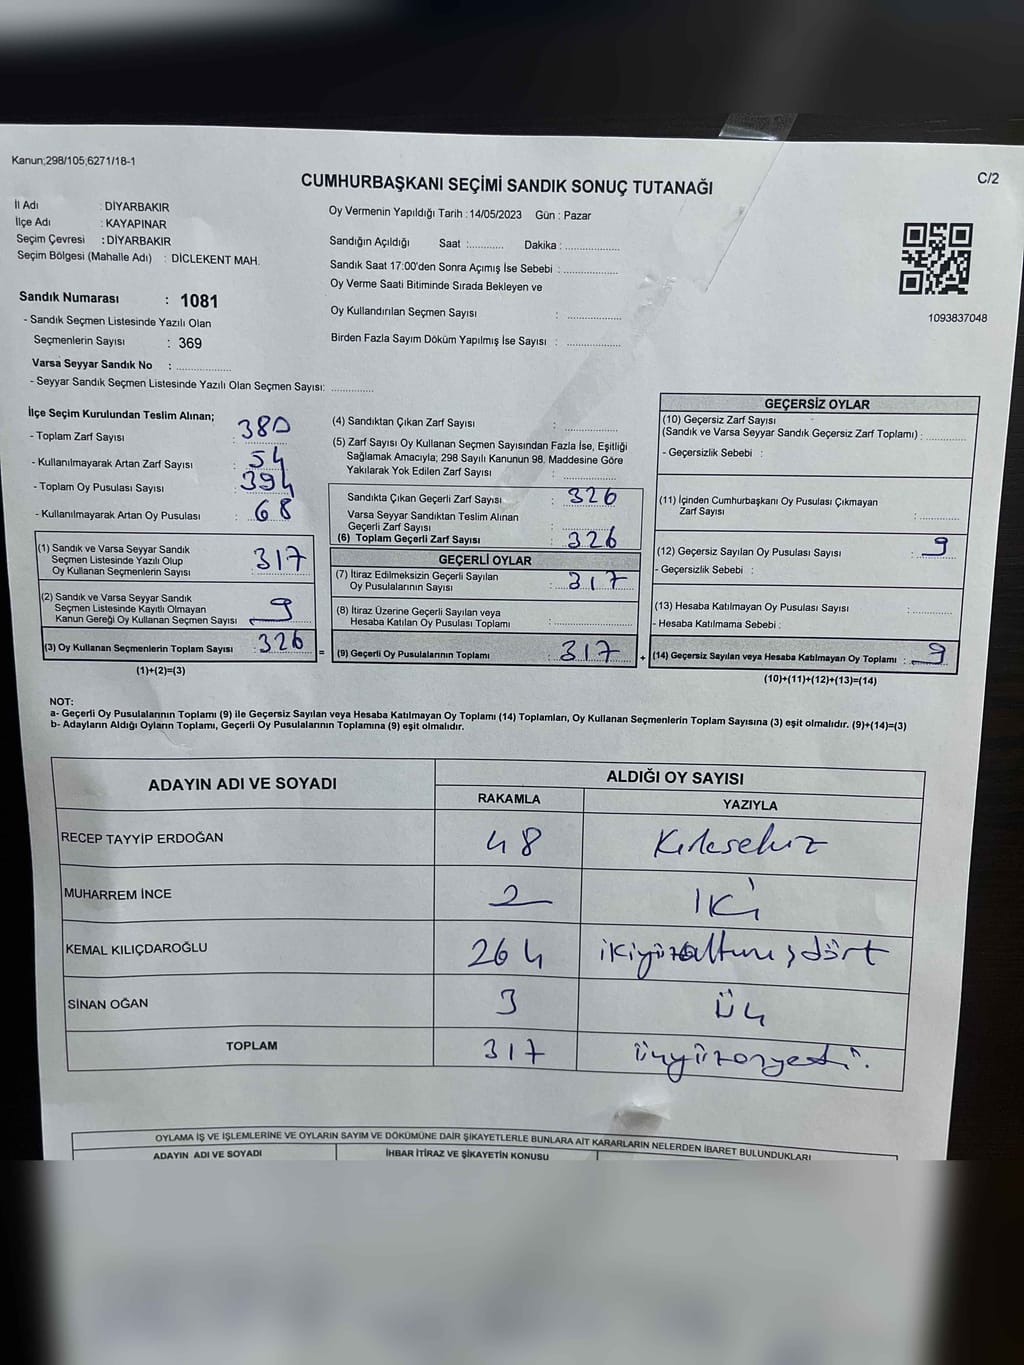 Kanun;298/105,6271/18-1
C/2
CUMHURBAŞKANI SEÇİMİ SANDIK SONUÇ TUTANAĞI
İl Adı : DİYARBAKIR
İlçe Adı : KAYAPINAR
Seçim Çevresi : DİYARBAKIR
Seçim Bölgesi (Mahalle Adı) : DİCLEKENT MAH.
Sandık Numarası : 1081
- Sandık Seçmen Listesinde Yazılı Olan
Seçmenlerin Sayısı : 369
Varsa Seyyar Sandık No : ..................
- Seyyar Sandık Seçmen Listesinde Yazılı Olan Seçmen Sayısı: .............
Oy Vermenin Yapıldığı Tarih : 14/05/2023 Gün : Pazar
Sandığın Açıldığı Saat :........... Dakika : .................
Sandık Saat 17:00'den Sonra Açımış İse Sebebi : .................
Oy Verme Saati Bitiminde Sırada Bekleyen ve
Oy Kullandırılan Seçmen Sayısı : .................
Birden Fazla Sayım Döküm Yapılmış İse Sayısı : .................
1093837048
İlçe Seçim Kurulundan Teslim Alınan;
- Toplam Zarf Sayısı : 380
- Kullanılmayarak Artan Zarf Sayısı : 54
- Toplam Oy Pusulası Sayısı : 394
- Kullanılmayarak Artan Oy Pusulası : 68
(1) Sandık ve Varsa Seyyar Sandık
Seçmen Listesinde Yazılı Olup
Oy Kullanan Seçmenlerin Sayısı : 317
(2) Sandık ve Varsa Seyyar Sandık
Seçmen Listesinde Kayıtlı Olmayan
Kanun Gereği Oy Kullanan Seçmen Sayısı : 9
(3) Oy Kullanan Seçmenlerin Toplam Sayısı : 326 =
(1)+(2)=(3)
(4) Sandıktan Çıkan Zarf Sayısı : .................
(5) Zarf Sayısı Oy Kullanan Seçmen Sayısından Fazla İse, Eşitliği
Sağlamak Amacıyla; 298 Sayılı Kanunun 98. Maddesine Göre
Yakılarak Yok Edilen Zarf Sayısı : .................
Sandıkta Çıkan Geçerli Zarf Sayısı : 326
Varsa Seyyar Sandıktan Teslim Alınan
Geçerli Zarf Sayısı : .................
(6) Toplam Geçerli Zarf Sayısı : 326
GEÇERLİ OYLAR
(7) İtiraz Edilmeksizin Geçerli Sayılan
Oy Pusulalarının Sayısı : 317
(8) İtiraz Üzerine Geçerli Sayılan veya
Hesaba Katılan Oy Pusulası Toplamı : .................
(9) Geçerli Oy Pusulalarının Toplamı : 317 +
GEÇERSİZ OYLAR
(10) Geçersiz Zarf Sayısı
(Sandık ve Varsa Seyyar Sandık Geçersiz Zarf Toplamı) : ............
- Geçersizlik Sebebi :
(11) İçinden Cumhurbaşkanı Oy Pusulası Çıkmayan
Zarf Sayısı : ............
(12) Geçersiz Sayılan Oy Pusulası Sayısı : 9
- Geçersizlik Sebebi :
(13) Hesaba Katılmayan Oy Pusulası Sayısı : ............
- Hesaba Katılmama Sebebi :
(14) Geçersiz Sayılan veya Hesaba Katılmayan Oy Toplamı : 9
(10)+(11)+(12)+(13)=(14)
NOT:
a- Geçerli Oy Pusulalarının Toplamı (9) ile Geçersiz Sayılan veya Hesaba Katılmayan Oy Toplamı (14) Toplamları, Oy Kullanan Seçmenlerin Toplam Sayısına (3) eşit olmalıdır. (9)+(14)=(3)
b- Adayların Aldığı Oyların Toplamı, Geçerli Oy Pusulalarının Toplamına (9) eşit olmalıdır.
ADAYIN ADI VE SOYADI
ALDIĞI OY SAYISI
RAKAMLA YAZIYLA
RECEP TAYYİP ERDOĞAN 48 Kırksekiz
MUHARREM İNCE 2 İKİ
KEMAL KILIÇDAROĞLU 264 ikiyüzaltmışdört
SİNAN OĞAN 3 Üç
TOPLAM 317 üçyüzonyedi.
OYLAMA İŞ VE İŞLEMLERİNE VE OYLARIN SAYIM VE DÖKÜMÜNE DAİR ŞİKAYETLERLE BUNLARA AİT KARARLARIN NELERDEN İBARET BULUNDUKLARI
ADAYIN ADI VE SOYADI İHBAR İTİRAZ VE ŞİKAYETİN KONUSU